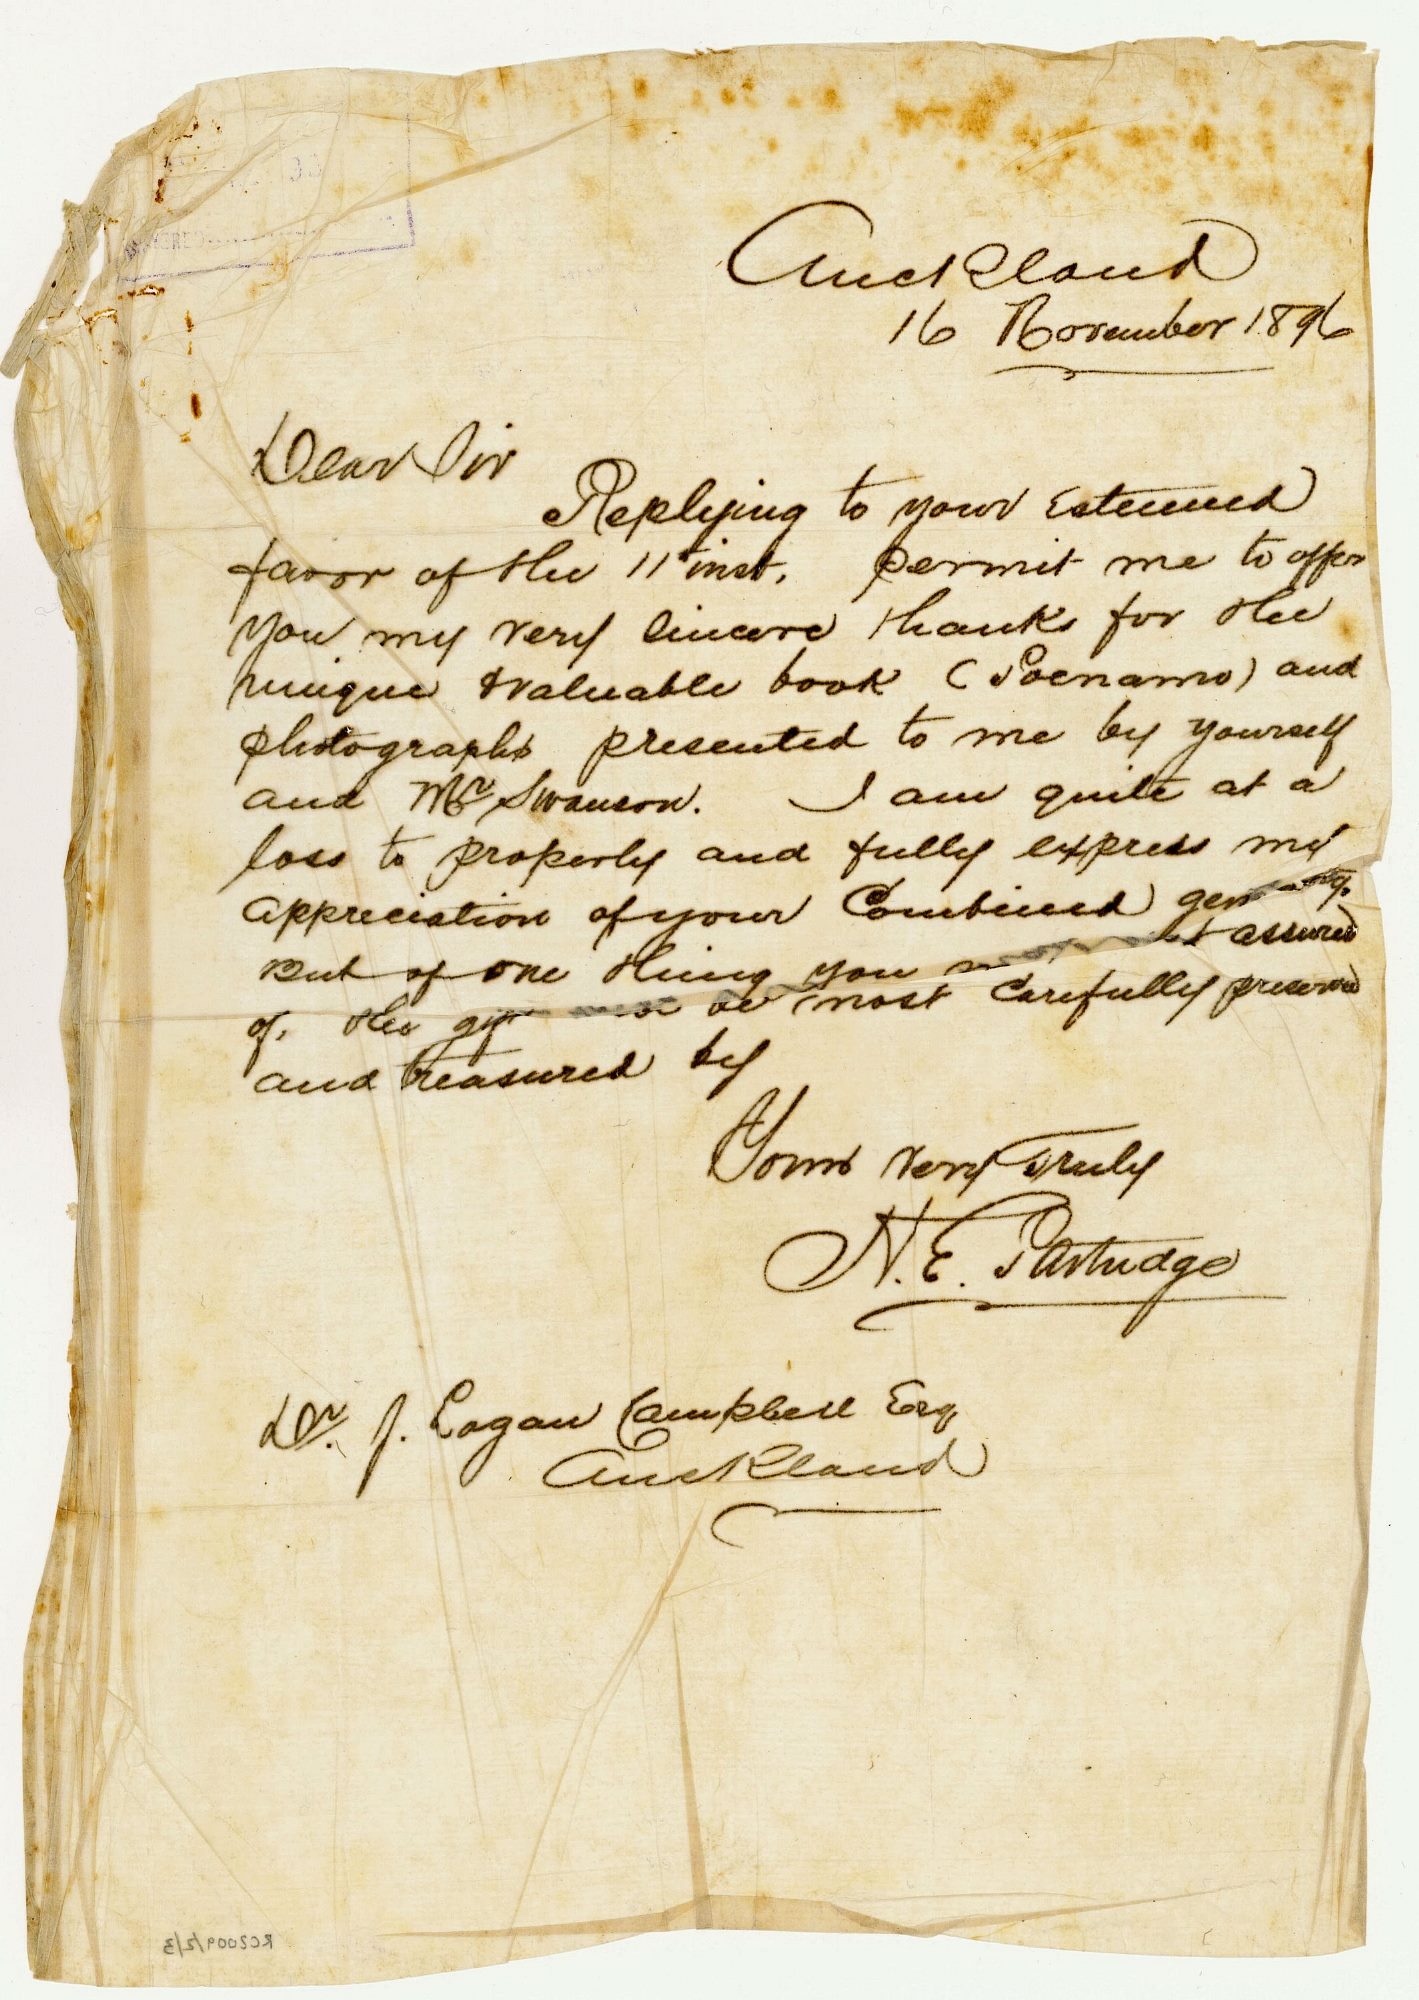 Auckland
16 November 1896
Dear Sir
Replying to your Esteemed
favor of the 11th inst. permit me to offer
you my very sincere thanks for the
unique & valuable book (Poenamo) and
photographs presented to me by yourself
and Mr Swanson. I am quite at a
loss to properly and fully express my
appreciation of your Combined
But of one thing you assured
of, the be most carefully preserved
and treasured by
Yours very Truly
N. E. Partridge
Dr. J. Logan Campbell Esq
Auckland
RC2009/2/3